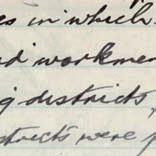 es in which
d workmen
g districts,
stricts were p